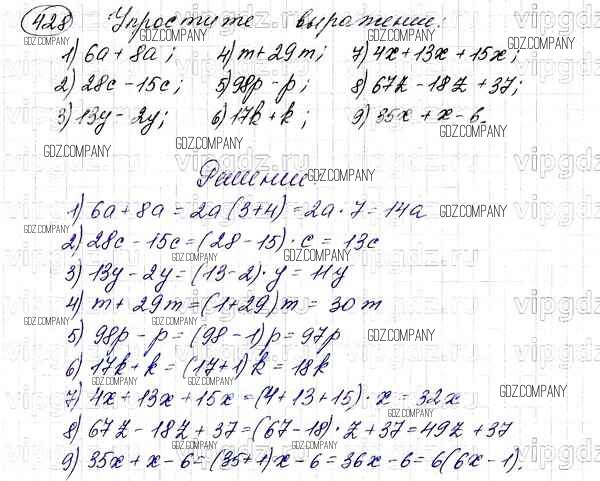 428 Упростите выражение:
1) 6a + 8a; 4) m + 29m; 7) 4x + 13x + 15x;
2) 28c - 15c; 5) 98p - p; 8) 67z - 18z + 37;
3) 13y - 2y; 6) 17k + k; 9) 35x + x - 6.
Решение.
1) 6a + 8a = 2a (3+4) = 2a · 7 = 14a
2) 28c - 15c = (28 - 15) · c = 13c
3) 13y - 2y = (13-2) · y = 11y
4) m + 29m = (1+29) m = 30m
5) 98p - p = (98 - 1) p = 97p
6) 17k + k = (17+1) k = 18k
7) 4x + 13x + 15x = (4 + 13 + 15) · x = 32x
8) 67z - 18z + 37 = (67 - 18) · z + 37 = 49z + 37
9) 35x + x - 6 = (35+1) x - 6 = 36x - 6 = 6(6x - 1).
GDZ.COMPANY
vipgdz.ru